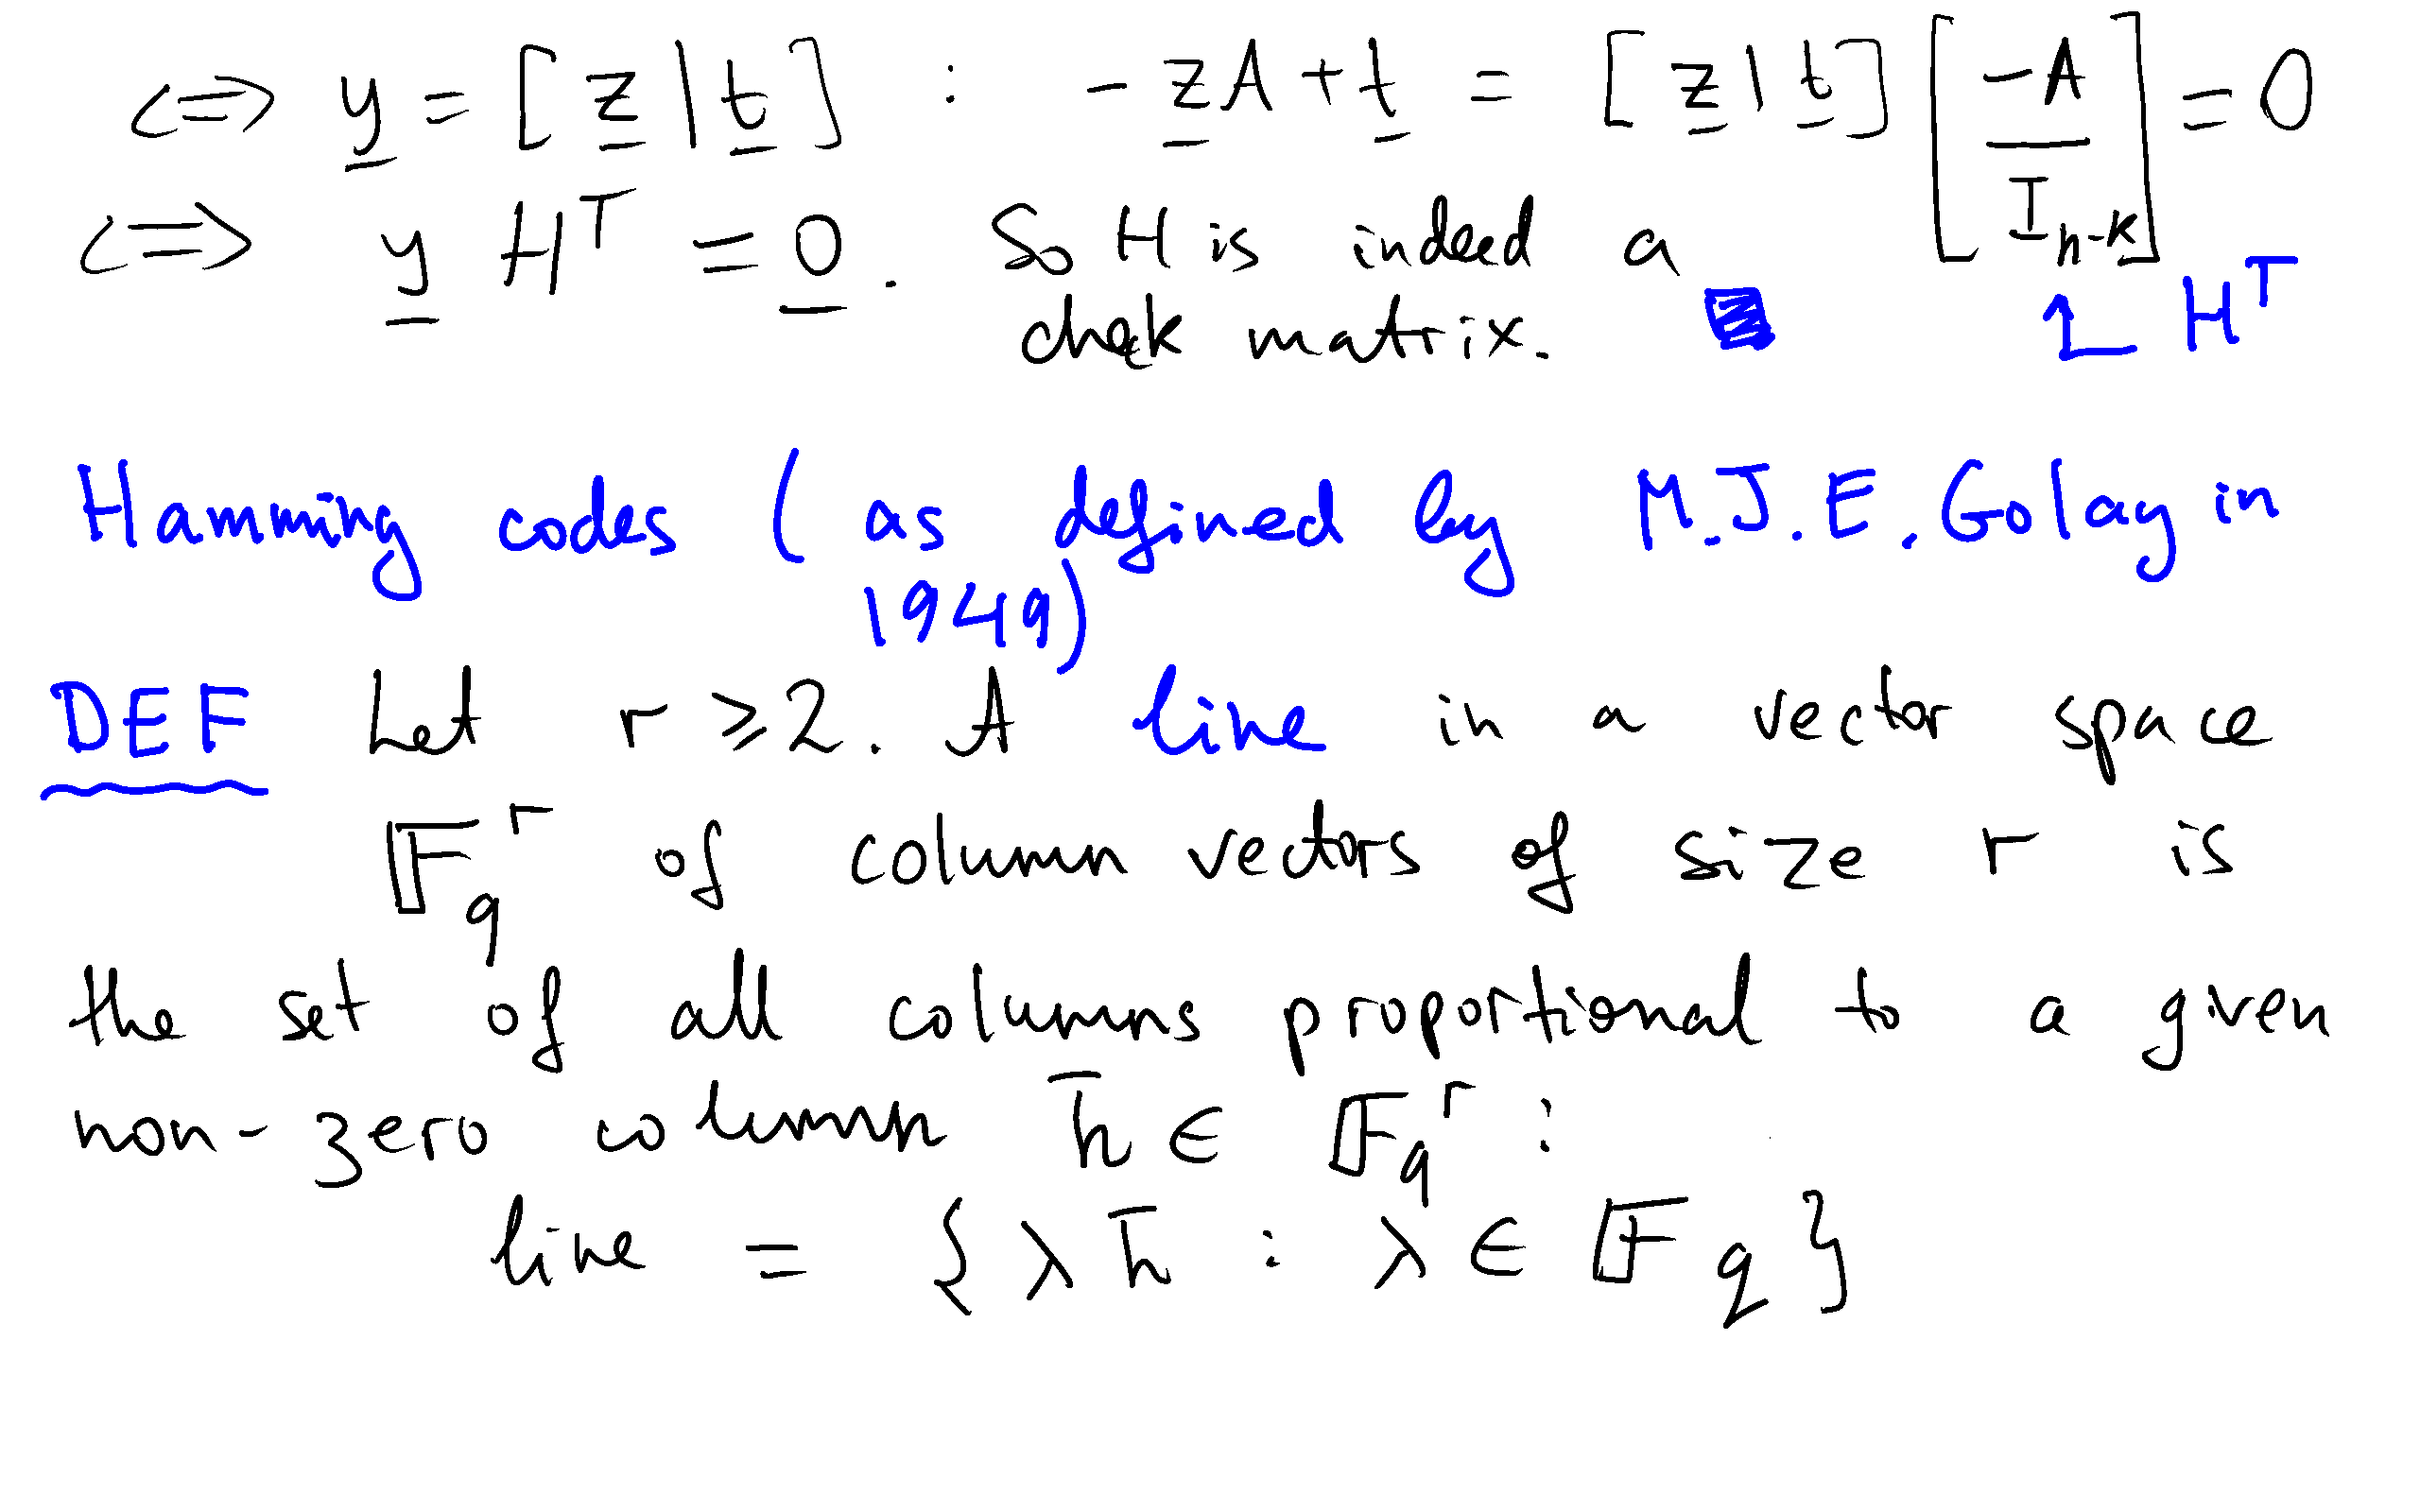 ⟺ y = [z | t] : -zA + t = [z | t] [-A / I_{n-k}] = 0
⟺ y H^T = 0. So H is indeed a
check matrix. ↑ H^T
Hamming codes (as defined by M.J.E. Golay in
1949)
DEF Let r ⩾ 2. A line in a vector space
𝔽_q^r of column vectors of size r is
the set of all columns proportional to a given
non-zero column h̄ ∈ 𝔽_q^r :
line = {λh̄ : λ ∈ 𝔽_q}